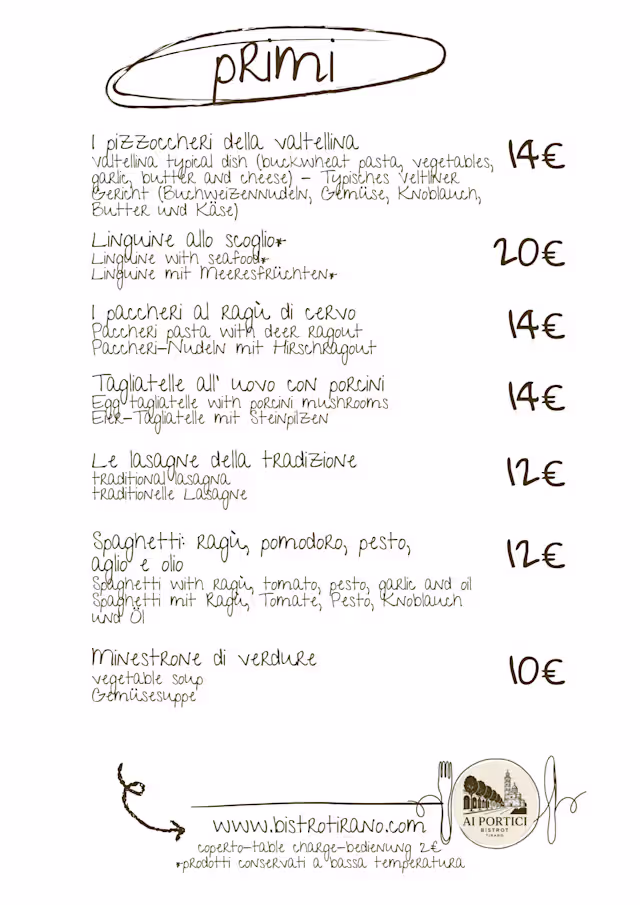 PRIMI
I pizzoccheri della valtellina
valtellina typical dish (buckwheat pasta, vegetables,
garlic, butter and cheese) – Typisches Veltliner
Gericht (Buchweizennudeln, Gemüse, Knoblauch,
Butter und Käse)
14€
Linguine allo scoglio*
Linguine with seafood*
Linguine mit Meeresfrüchten*
20€
I paccheri al ragù di cervo
Paccheri pasta with deer ragout
Paccheri-Nudeln mit Hirschragout
14€
Tagliatelle all' uovo con porcini
Egg tagliatelle with porcini mushrooms
Eier-Tagliatelle mit Steinpilzen
14€
Le lasagne della tradizione
traditional lasagna
traditionelle Lasagne
12€
Spaghetti: ragù, pomodoro, pesto,
aglio e olio
Spaghetti with ragù, tomato, pesto, garlic and oil
Spaghetti mit Ragù, Tomate, Pesto, Knoblauch
und Öl
12€
Minestrone di verdure
vegetable soup
Gemüsesuppe
10€
www.bistrotirano.com
coperto-table charge-bedienung 2€
*prodotti conservati a bassa temperatura
AI PORTICI
BISTROT
TIRANO